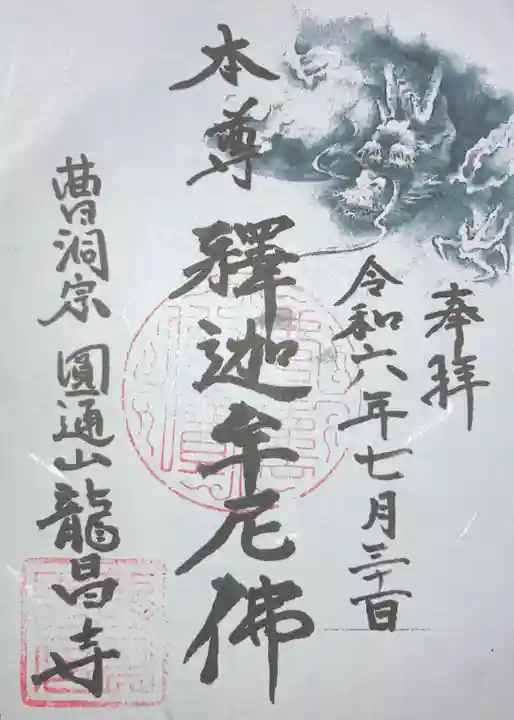 奉拝
令和六年七月三十日
本尊
釋迦牟尼佛
曹洞宗 圓通山龍昌寺